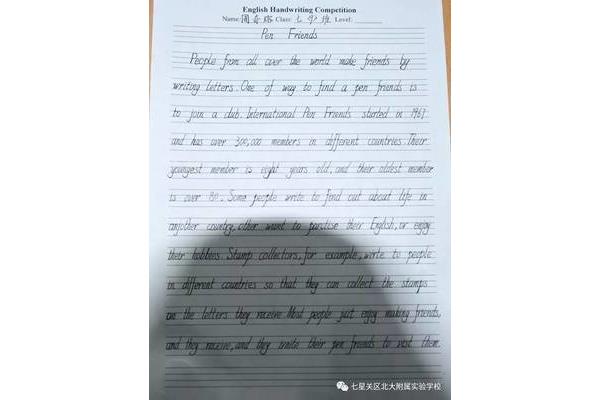 English Handwriting Competition
Name: 周奇瑢 Class: 七(9)班 Level:
Pen Friends
People from all over the world make friends by
writing letters. One of way to find a pen friends is
to join a club. International Pen Friends started in 1967
and has over 300,000 members in different countries. Their
youngest member is eight years old, and their oldest member
is over 80. Some people write to find out about life in
anjother country, other want to parctise their English, or enjoy
their hobbies. Stamp collectors, for example, write to people
in different countries so that they can collect the stamps
on the letters they receive. Most people just enjoy making friends,
and they receive, and they invite their pen friends to visit them.
七星关区北大附属实验学校